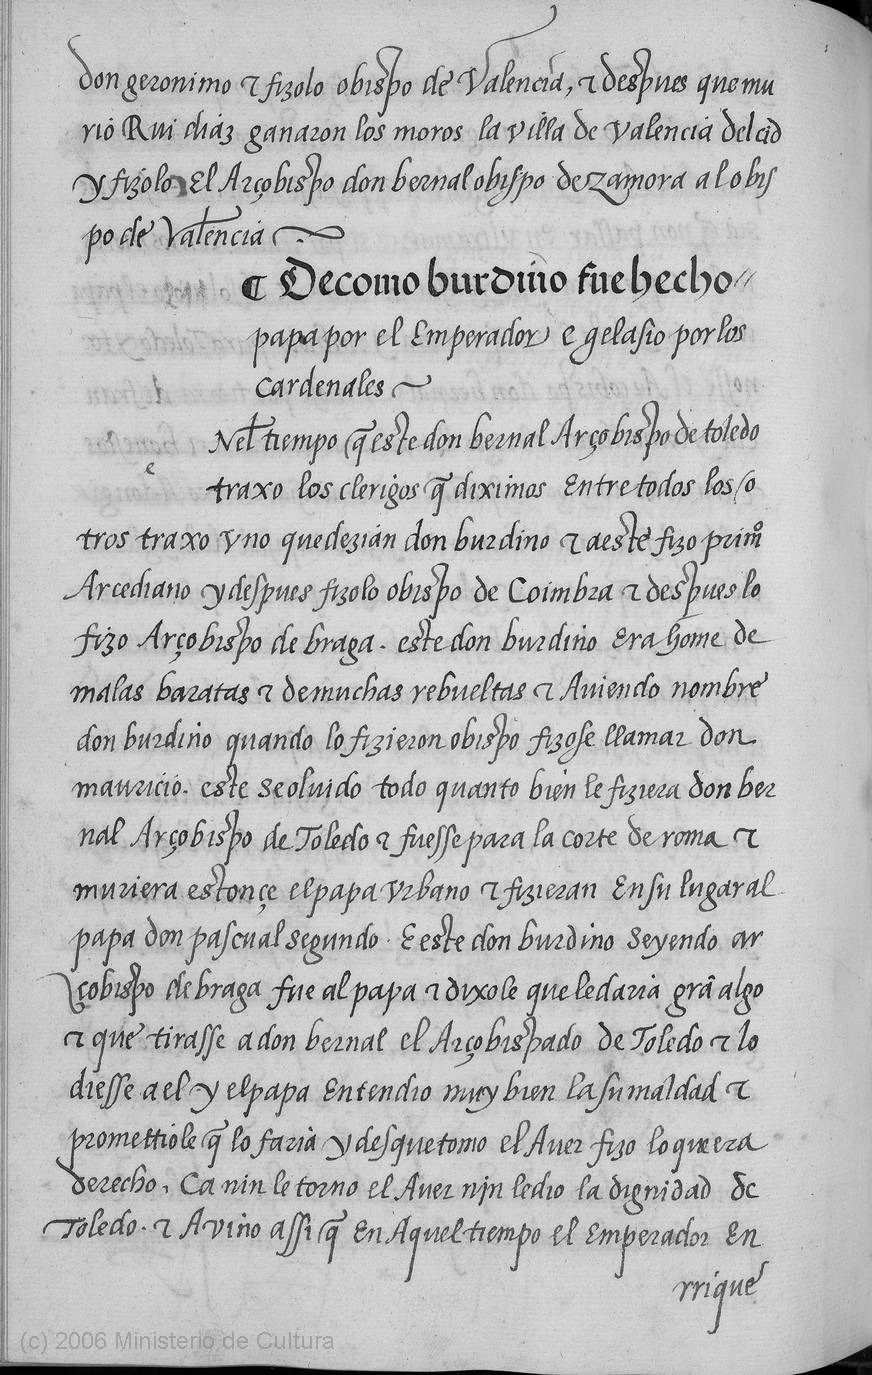 don geronimo τ fizolo obispo de Valencia, τ despues que mu
rió Rui diáz ganaron los moros la villa de valencia del cid
y fizolo El Arçobispo don bernal obispo de zamora al obis
po de Valencia
¶ De como burdino fue hecho
papa por el Emperador e gelasio por los
cardenales
e
Nel tiempo q̃ este don bernal Arçobispo de toledo
traxo los clerigos q̃ diximos Entre todos los / o
tros traxo vno que dezián don burdino τ a este fizo primº
Arcediano y despues fizolo obispo de Coimbra τ despues lo
fizo Arçobispo de braga. este don burdino Era home de
malas baratas τ de muchas rebueltas τ Auiendo nombre
don burdino quando lo fizieron obispo fizose llamar don
mauricio. este se oluido todo quanto bien le fiziera don ber
nal Arçobispo de Toledo τ fuesse para la corte de roma τ
muriera estonçe el papa vrbano τ fizieran En su lugar al
papa don pascual segundo. E este don burdino seyendo ar
çobispo de braga fue al papa τ dixole que le daria grã algo
τ que tirasse a don bernal el Arçobispado de Toledo τ lo
diesse a el y el papa Entendio muy bien la su maldad τ
promettiole q̃ lo faria y desque tomo el Auer fizo lo que era
derecho, Ca nin le torno el Auer nin le dio la dignidad de
Toledo. τ Avino assi q̃ En Aquel tiempo el Emperador En
rrique
(c) 2006 Ministerio de Cultura